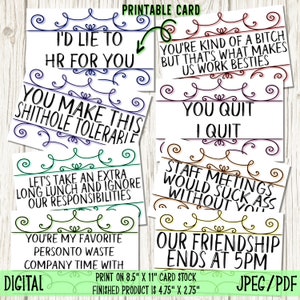 PRINTABLE CARD
I'D LIE TO
HR FOR YOU
YOU'RE KIND OF A BITCH
BUT THAT'S WHAT MAKES
US WORK BESTIES
YOU MAKE THIS
SHITHOLE TOLERABLE
YOU QUIT
I QUIT
LET'S TAKE AN EXTRA
LONG LUNCH AND IGNORE
OUR RESPONSIBILITIES
STAFF MEETINGS
WOULD SUCK ASS
WITHOUT YOU
YOU'RE MY FAVORITE
PERSONTO WASTE
COMPANY TIME WITH
OUR FRIENDSHIP
ENDS AT 5PM
DIGITAL
PRINT ON 8.5" X 11" CARD STOCK
FINISHED PRODUCT IS 4.75" X 2.75"
JPEG/PDF